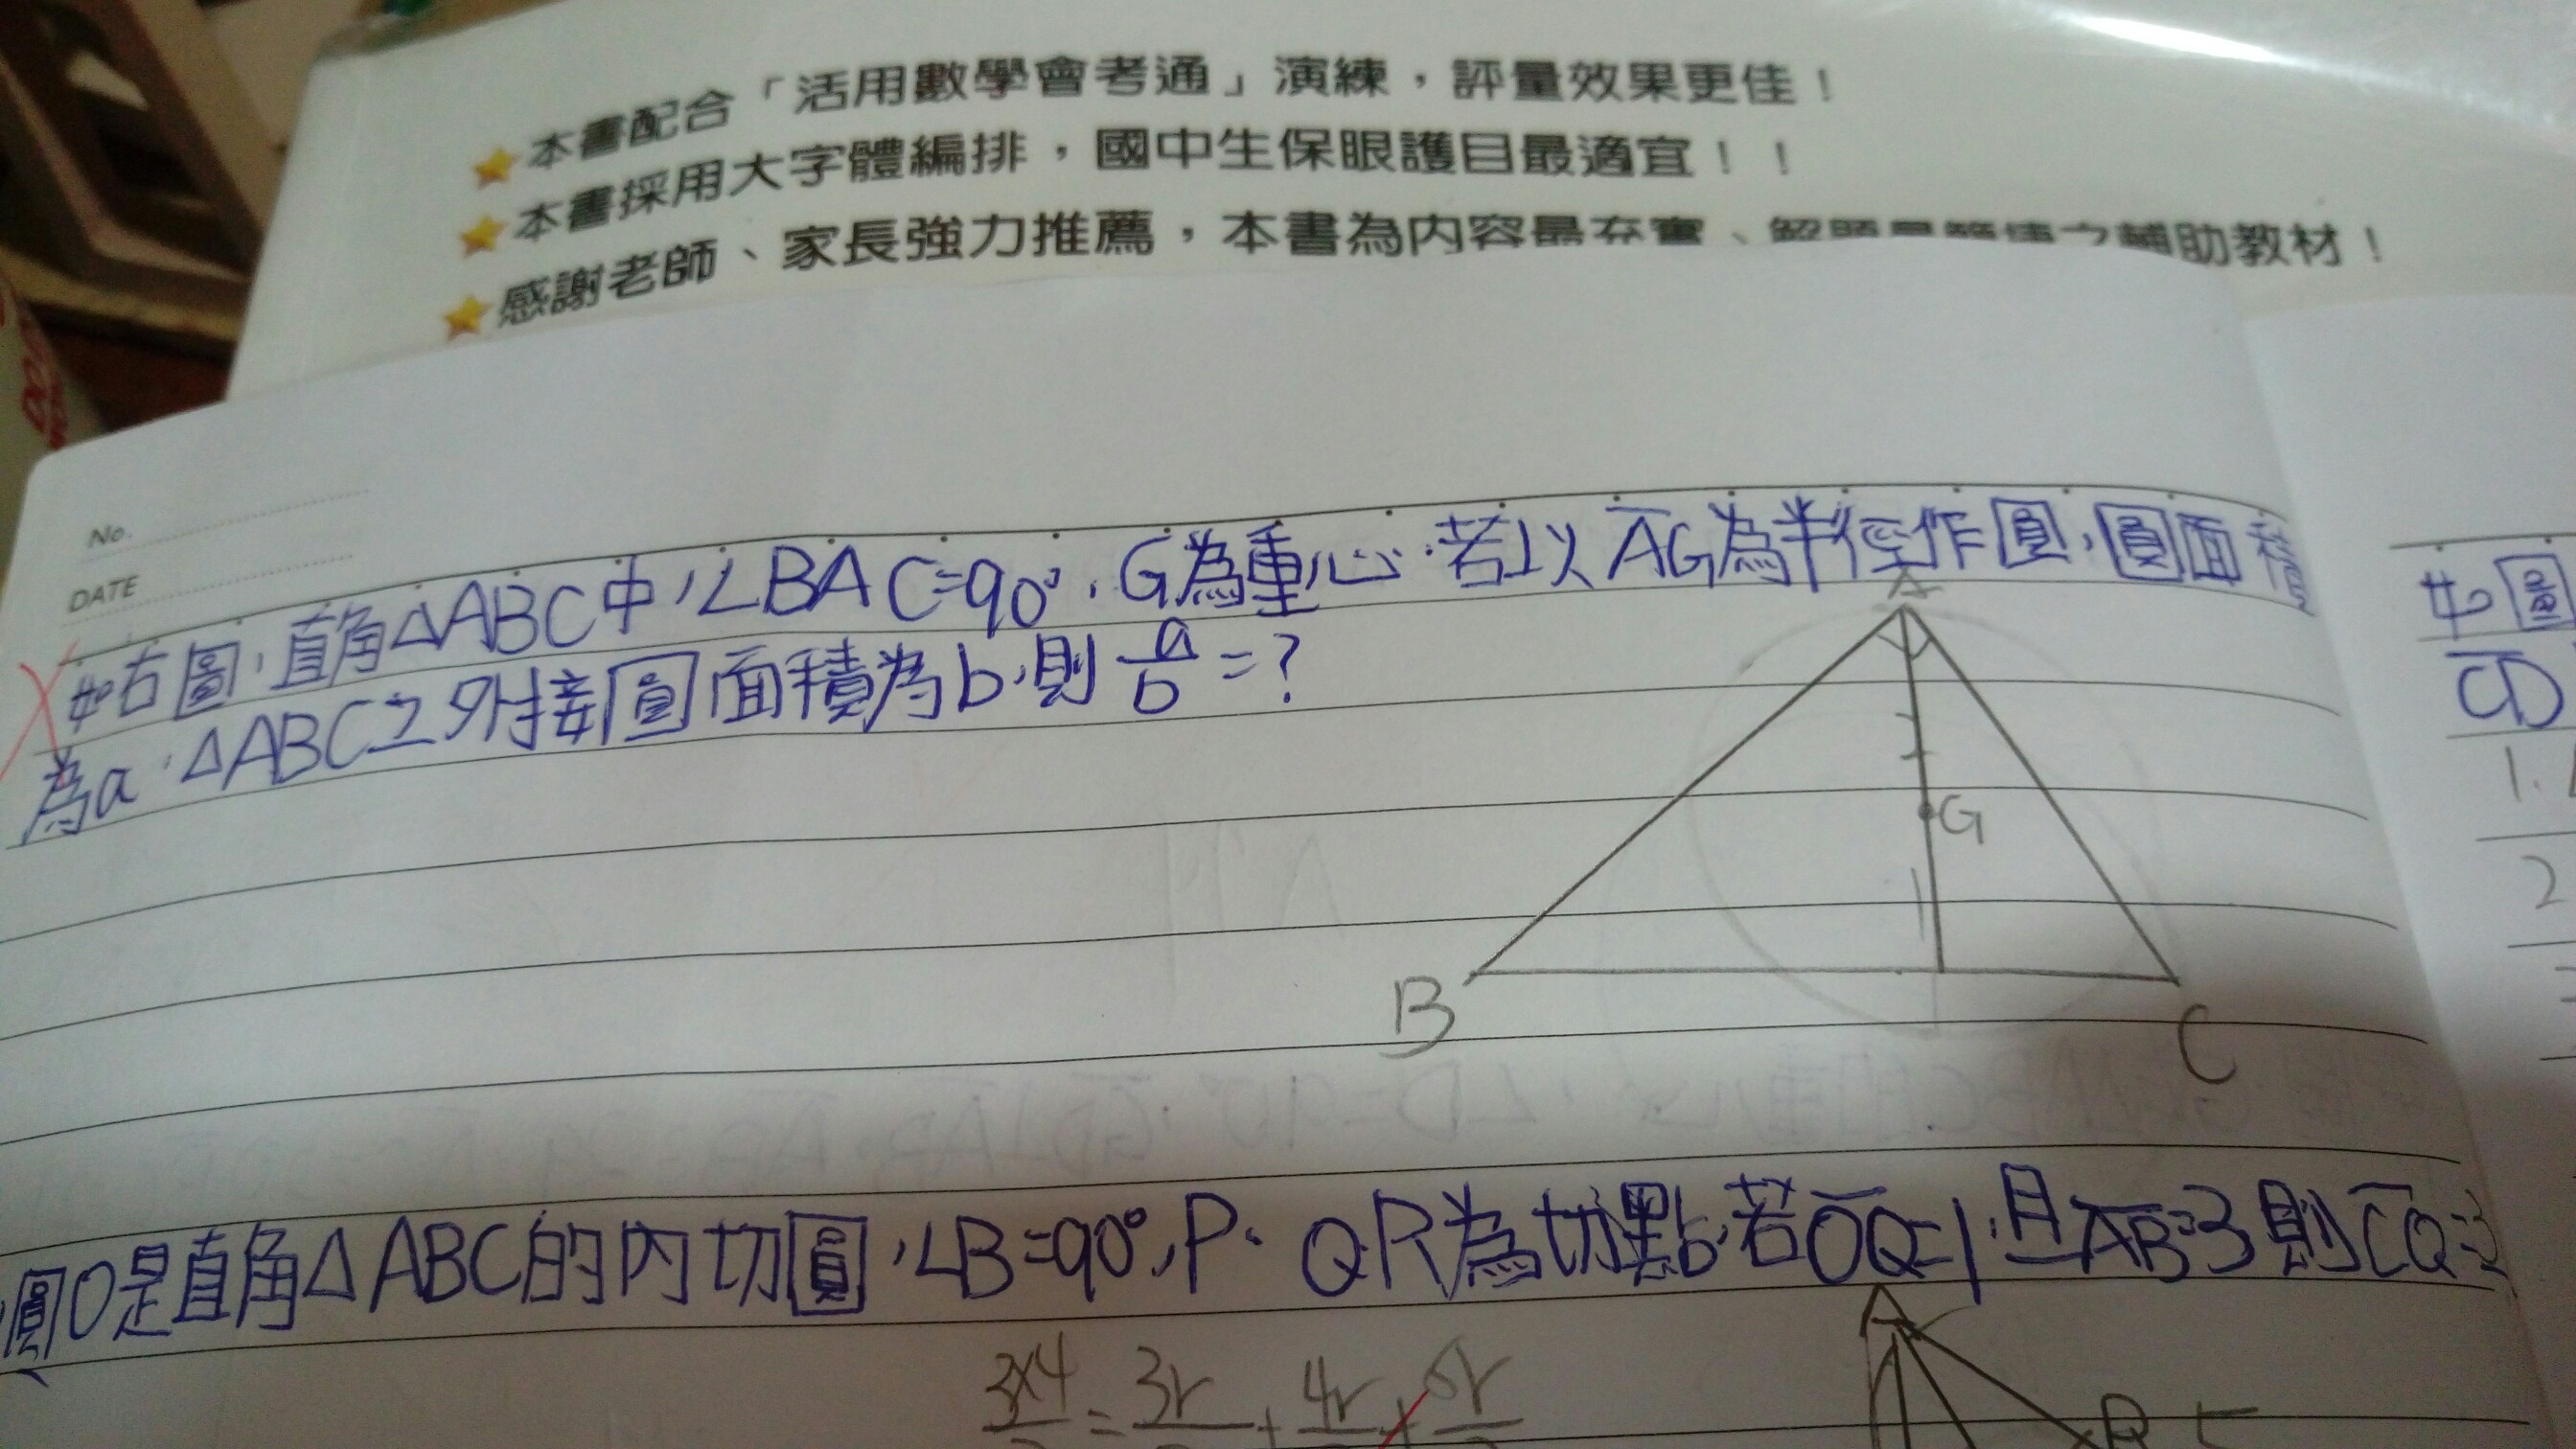 本書配合「活用數學會考通」演練，評量效果更佳！
本書採用大字體編排，國中生保眼護目最適宜！！
感謝老師、家長強力推薦，本書為內容最充實、解題最簡捷之輔助教材！
No.
DATE
如右圖,直角△ABC中,∠BAC=90°,G為重心.若以AG為半徑作圓,圓面積
為a.△ABC之外接圓面積為b.則a/b=?
A
G
B
C
圓O是直角△ABC的內切圓,∠B=90°,P、Q、R為切點.若OQ=1,且AB=3則CQ=
3×4 = 3r + 4r + 5r
A
R
如圖
CD
1.
2